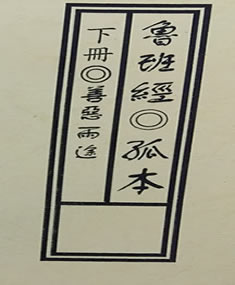 魯班經◎孤本
下冊◎善惡兩途